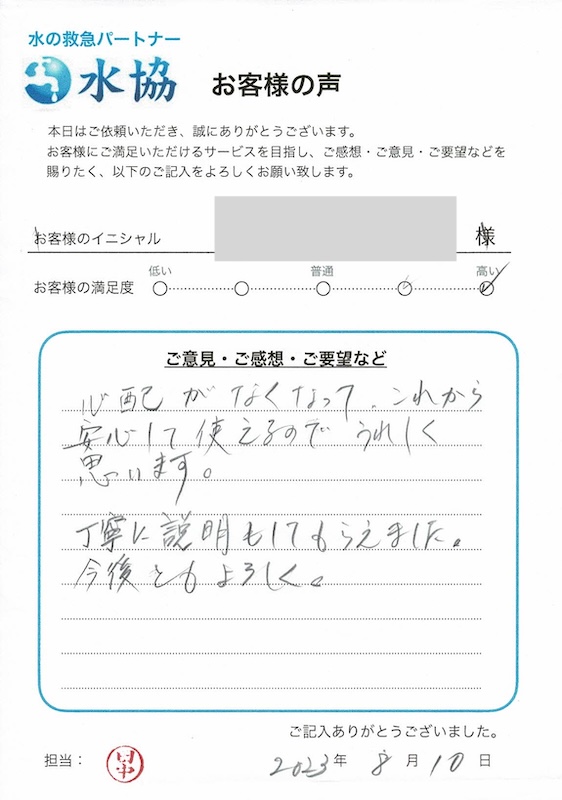 水の救急パートナー
水協 お客様の声
本日はご依頼いただき、誠にありがとうございます。
お客様にご満足いただけるサービスを目指し、ご感想・ご意見・ご要望などを
賜りたく、以下のご記入をよろしくお願い致します。
お客様のイニシャル 様
低い 普通 高い
お客様の満足度
ご意見・ご感想・ご要望など
心配がなくなって、これから
安心して使えるので うれしく
思います。
丁寧に説明もしてもらえました。
今後ともよろしく。
ご記入ありがとうございました。
担当： 田中 2023年 8月 10日